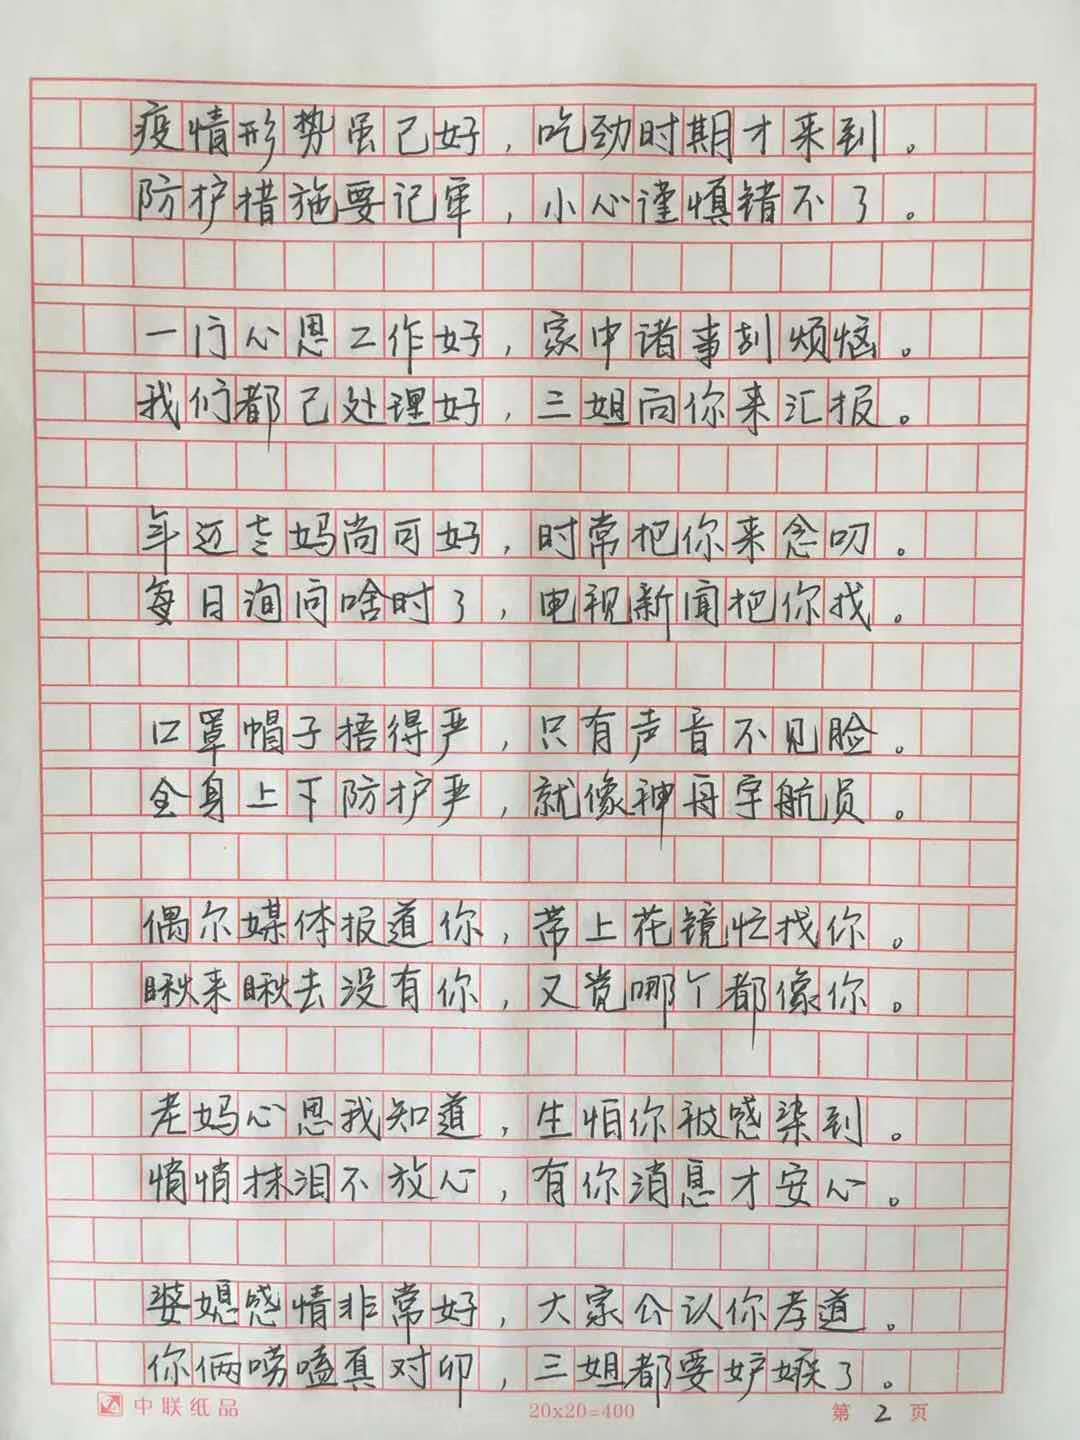 疫情形势虽已好，吃劲时期才来到。
防护措施要记牢，小心谨慎错不了。
一门心思工作好，家中诸事别烦恼。
我们都已处理好，三姐向你来汇报。
年迈老妈尚可好，时常把你来念叨。
每日询问啥时了，电视新闻把你找。
口罩帽子捂得严，只有声音不见脸。
全身上下防护严，就像神舟宇航员。
偶尔媒体报道你，带上花镜忙找你。
瞅来瞅去没有你，又觉哪个都像你。
老妈心思我知道，生怕你被感染到。
悄悄抹泪不放心，有你消息才安心。
婆媳感情非常好，大家公认你孝道。
你俩唠嗑真对卯，三姐都要妒嫉了。
中联纸品 20x20=400 第 2 页